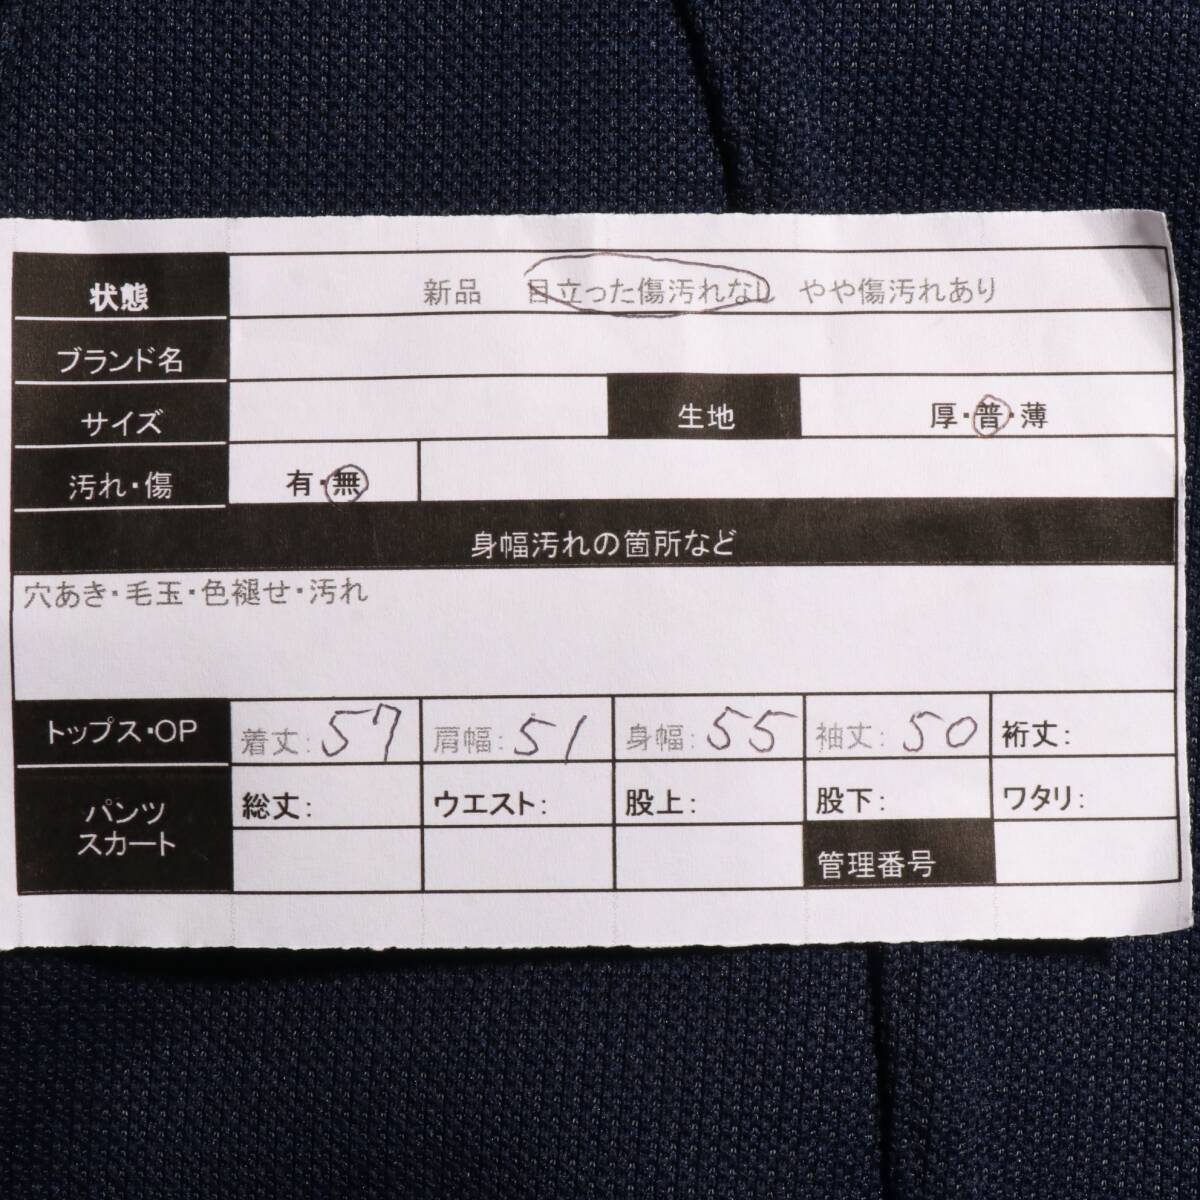 状態 新品 目立った傷汚れなし やや傷汚れあり
ブランド名
サイズ 生地 厚・普・薄
汚れ・傷 有・無
身幅汚れの箇所など
穴あき・毛玉・色褪せ・汚れ
トップス・OP 着丈: 57 肩幅: 51 身幅: 55 袖丈: 50 裄丈:
パンツ 総丈: ウエスト: 股上: 股下: ワタリ:
スカート
管理番号